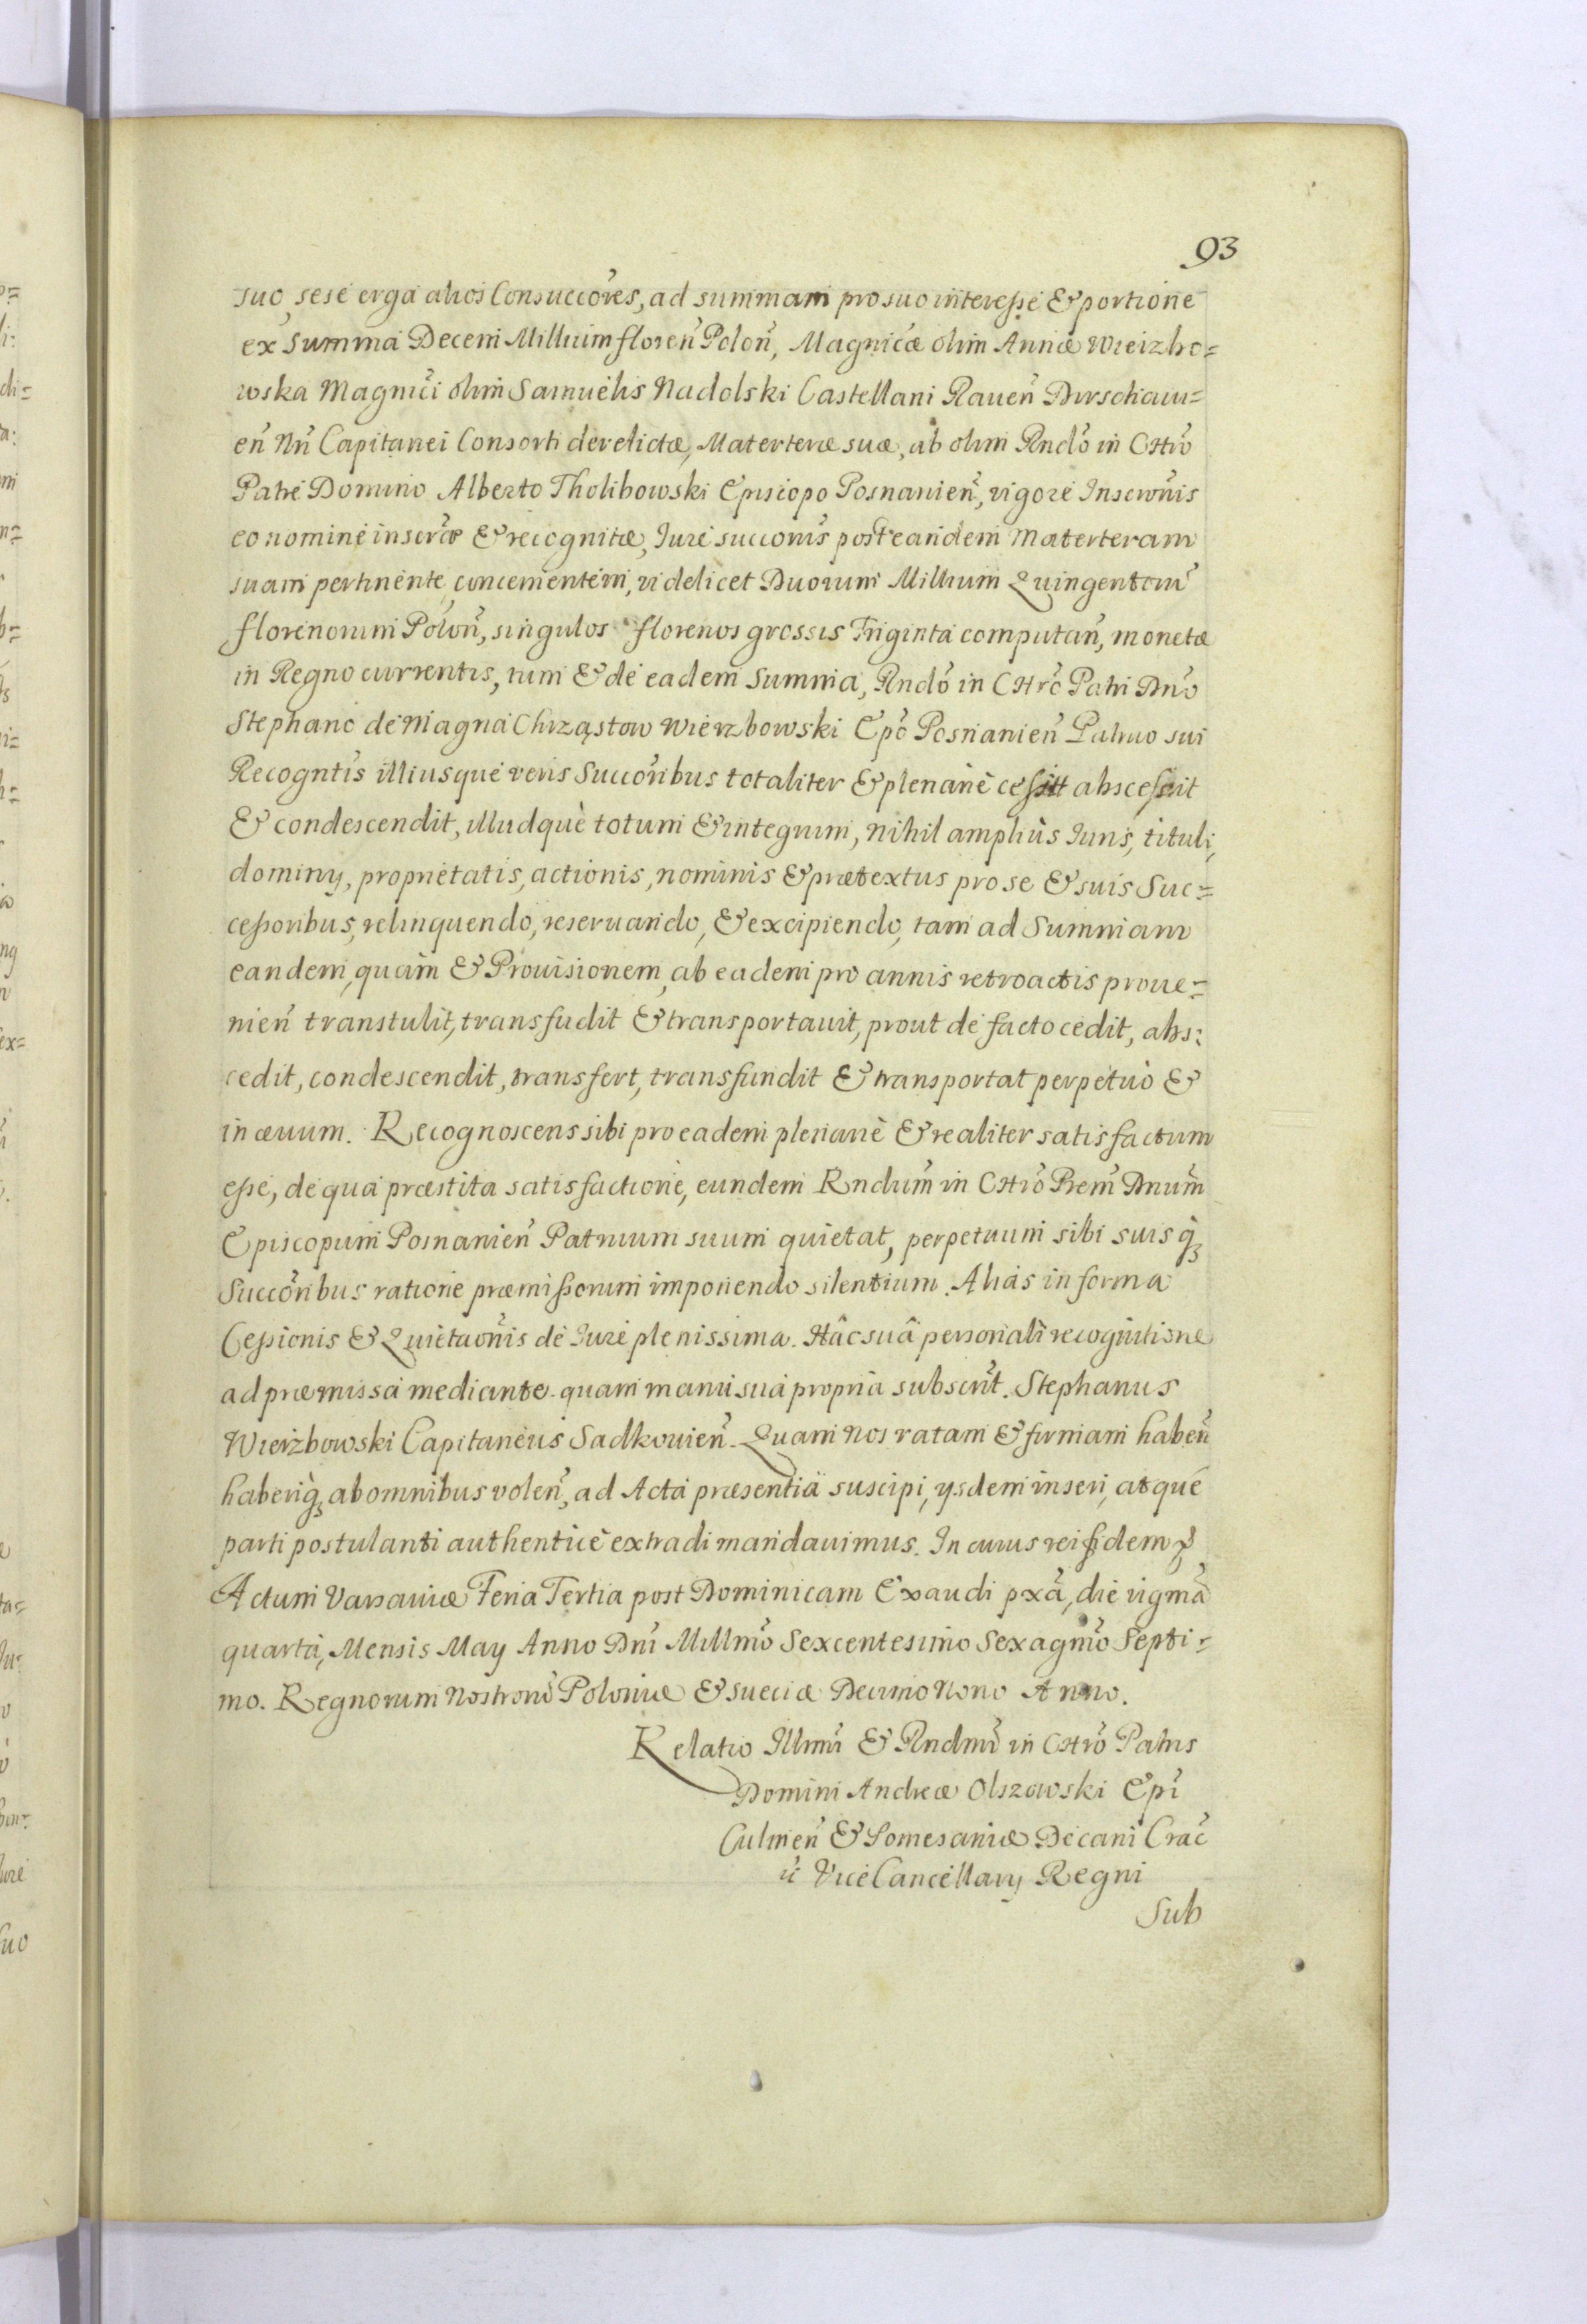 93
suo, sese erga alios Consuccões, ad summam pro suo interesse & portione
ex Summa Decem Millium floreñ Poloñ, Magnicæ olim Annæ Wierzbo=
wska Magnici olim Samuelis Nadolski Castellani Raueñ Dirschaui=
eñ Nñ Capitanei Consorti derelictæ, Materteræ suæ, ab olim Rndo in CHro
Patre Domino Alberto Tholibowski Episcopo Posnanieñ, vigore Inscrõnis
eo nomine inscræ & recognitæ, Jure succonis post eandem Materteram
suam pertinente, concernentem, videlicet Duorum Millium Quingentorũ
florenorum Poloñ, singulos florenos grossis Triginta computañ, monetæ
in Regno currentis, tum & de eadem Summa, Rndo in CHro Patri Dno
Stephano de Magna Chrząstow Wierzbowski Epo Posnanieñ Patruo sui
Recogntis illiusque veris Succoribus totaliter & plenariè cessit abscessit
& condescendit, illudquè totum & integrum, nihil ampliùs Iuris, tituli,
dominy, proprietatis, actionis, nominis & prætextus pro se & suis Suc=
cessoribus, relinquendo, reseruando, & excipiendo, tam ad Summam
eandem, quàm & Prouisionem, ab eadem pro annis retroactis proue=
nieñ transtulit, transfudit & transportauit, prout de facto cedit, abs:
cedit, condescendit, transfert, transfundit & transportat perpetuò &
in æuum. Recognoscens sibi pro eadem plenariè & realiter satisfactum
esse, de qua præstita satisfactione, eundem Rndum in CHro Prem Dnum
Episcopum Posnanieñ Patruum suum quietat, perpetuum sibi suisq́ꝫ
Succoribus ratione præmissorum imponendo silentium. Aliàs in forma
Cessionis & Quietaonis de Iure plenissima. Hâc suâ personali recognitione
ad præmissa mediante. quam manu sua propria subscrit. Stephanus
Wierzbowski Capitaneus Sadkouieñ. Quam Nos ratam & firmam habeñ
haberiq́ꝫ ab omnibus voleñ, ad Acta præsentia suscipi, ysdem inseri, atque
parti postulanti authenticè extradi mandauimus. In cuius rei fidem
Actum Varsauiæ Feria Tertia post Dominicam Exaudi pxa, die vigma
quarta, Mensis May Anno Dni Millmo Sexcentesimo Sexagmo Septi=
mo. Regnorum Nostrorũ Poloniæ & Sueciæ Decimo Nono Anno.
Relatio Illmi & Rndmi in CHro Patris
Domini Andreæ Olszowski Epi
Culmeñ & Pomesaniæ Decani Crac
Vice Cancellary Regni
Sub